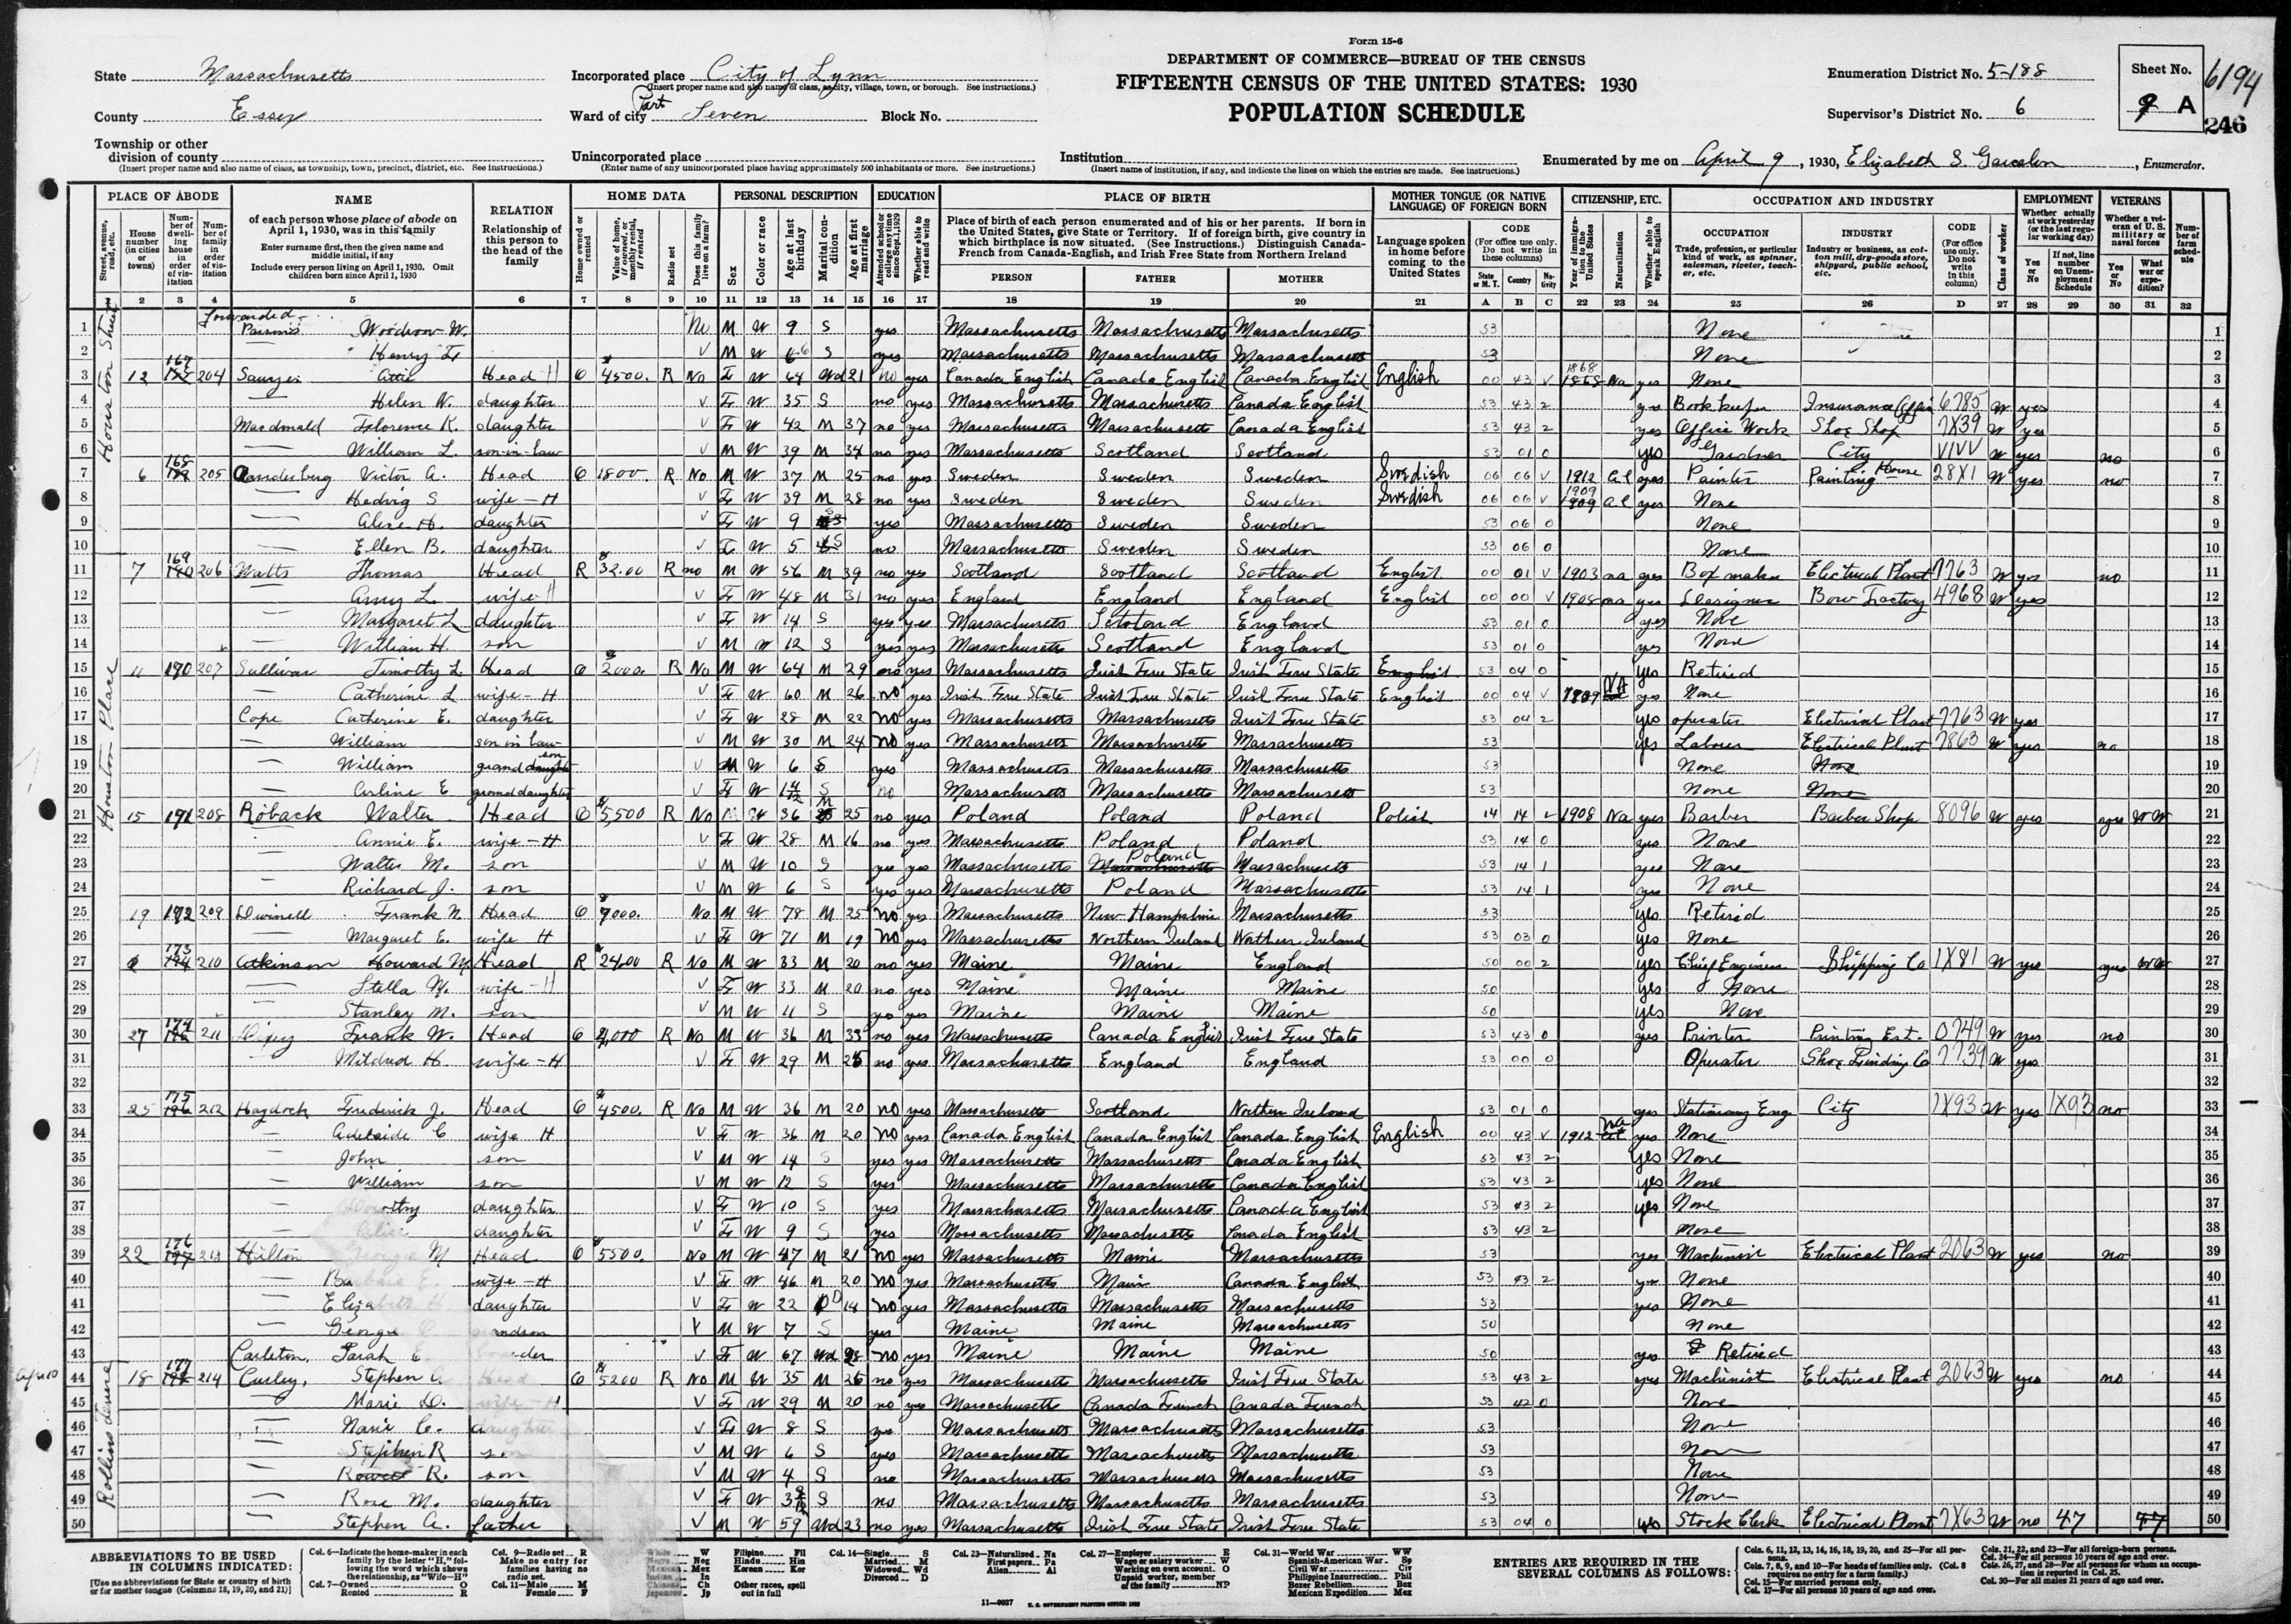 Form 15-6
DEPARTMENT OF COMMERCE—BUREAU OF THE CENSUS
FIFTEENTH CENSUS OF THE UNITED STATES: 1930
POPULATION SCHEDULE
State Massachusetts
County Essex
Township or other division of county
(Insert proper name and also name of class, as township, town, precinct, district, etc. See instructions.)
Incorporated place City of Lynn
(Insert proper name and also name of class, as city, village, town, or borough. See instructions.)
Ward of city Part Seven Block No.
Unincorporated place
(Enter name of any unincorporated place having approximately 500 inhabitants or more. See instructions.)
Institution
(Insert name of institution, if any, and indicate the lines on which the entries are made. See instructions.)
Enumeration District No. 5-188
Supervisor's District No. 6
Sheet No. 9 A
6194
246
Enumerated by me on April 9, 1930, Elizabeth S. Garcelon, Enumerator.
PLACE OF ABODE
NAME of each person whose place of abode on April 1, 1930, was in this family
Enter surname first, then the given name and middle initial, if any
Include every person living on April 1, 1930. Omit children born since April 1, 1930
RELATION Relationship of this person to the head of the family
HOME DATA
PERSONAL DESCRIPTION
EDUCATION
PLACE OF BIRTH
Place of birth of each person enumerated and of his or her parents. If born in the United States, give State or Territory. If of foreign birth, give country in which birthplace is now situated. (See Instructions.) Distinguish Canada-French from Canada-English, and Irish Free State from Northern Ireland
PERSON FATHER MOTHER
MOTHER TONGUE (OR NATIVE LANGUAGE) OF FOREIGN BORN
Language spoken in home before coming to the United States
CODE (For office use only. Do not write in these columns)
CITIZENSHIP, ETC.
OCCUPATION AND INDUSTRY
EMPLOYMENT
VETERANS
Houston Street
Houston Place
Rollins Terrace
forwarded
1 Parsons Woodrow W. No M W 9 S yes Massachusetts Massachusetts Massachusetts 53 None
2 Henry F. M W 6 S yes Massachusetts Massachusetts Massachusetts 53 None
3 12 167 204 Sawyer Attie Head H O 4500. R No F W 64 Wd 21 no yes Canada English Canada English Canada English English 00 43 V 1868 Na yes None
4 Helen N. daughter F W 35 S no yes Massachusetts Massachusetts Canada English 53 43 2 yes Book keeper Insurance Office 6785 W yes
5 Macdonald Florence K. daughter F W 42 M 37 no yes Massachusetts Massachusetts Canada English 53 43 2 yes Office Work Shoe Shop 7X39 W yes
6 William L. son-in-law M W 39 M 34 no yes Massachusetts Scotland Scotland 53 01 0 yes Gardner City VIVV W yes no
7 6 168 205 Victor A. Head O 1800. R No M W 37 M 25 no yes Sweden Sweden Sweden Swedish 06 06 V 1912 al yes Painter Painting House 28X1 W yes no
8 Hedvig S wife - H F W 39 M 28 no yes Sweden Sweden Sweden Swedish 06 06 V 1909 al yes None
9 Alice H. daughter F W 9 S yes Massachusetts Sweden Sweden 53 06 0 None
10 Ellen B. daughter F W 5 S no Massachusetts Sweden Sweden 53 06 0 None
11 7 169 206 Watts Thomas Head R 32.00 R no M W 56 M 39 no yes Scotland Scotland Scotland English 00 01 V 1903 na yes Box maker Electrical Plant 7763 W yes no
12 Amy L. wife H F W 48 M 31 no yes England England England English 00 00 V 1908 na yes Designer Bow Factory 4968 W yes
13 Margaret L daughter F W 14 S yes yes Massachusetts Scotland England 53 01 0 yes None
14 William H. son M W 12 S yes yes Massachusetts Scotland England 53 01 0 yes None
15 11 170 207 Sullivan Timothy L. Head O 2000. R No M W 64 M 29 no yes Massachusetts Irish Free State Irish Free State English 53 04 0 yes Retired
16 Catherine L wife - H F W 60 M 26 no yes Irish Free State Irish Free State Irish Free State English 00 04 V 1889 NA yes None
17 Cope Catherine E. daughter F W 28 M 22 no yes Massachusetts Massachusetts Irish Free State 53 04 2 yes operater Electrical Plant 7763 W yes
18 William son in law M W 30 M 24 no yes Massachusetts Massachusetts Massachusetts 53 yes Laborer Electrical Plant 7863 W yes no
19 William grand son M W 6 S yes Massachusetts Massachusetts Massachusetts 53 None None
20 Arline E grand daughter F W 1 4/12 S no Massachusetts Massachusetts Massachusetts 53 None None
21 15 171 208 Roback Walter Head O 5,500 R No M W 36 M 25 no yes Poland Poland Poland Polish 14 14 V 1908 Na yes Barber Barber Shop 8096 W yes yes WW
22 Annie E. wife - H F W 28 M 16 no yes Massachusetts Poland Poland 53 14 0 yes None
23 Walter M. son M W 10 S yes yes Massachusetts Poland Massachusetts 53 14 1 yes None
24 Richard J. son M W 6 S yes yes Massachusetts Poland Massachusetts 53 14 1 yes None
25 19 172 209 Dwinell Frank N Head O 9000. No M W 78 M 25 no yes Massachusetts New Hampshire Massachusetts 53 yes Retired
26 Margaret E. wife H F W 71 M 19 no yes Massachusetts Northern Ireland Northern Ireland 53 03 0 yes None
27 173 210 Atkinson Howard M. Head R 24.00 R No M W 33 M 20 no yes Maine Maine England 50 00 2 yes Chief Engineer Shipping Co 1X81 W yes yes WW
28 Stella M. wife - H F W 33 M 20 no yes Maine Maine Maine 50 yes None
29 Stanley M. son M W 11 S yes yes Maine Maine Maine 50 yes None
30 27 174 211 Frank W. Head O 4,000 R No M W 36 M 33 no yes Massachusetts Canada English Irish Free State 53 43 0 yes Printer Printing Est. 0749 W yes no
31 Mildred H. wife - H F W 29 M 25 no yes Massachusetts England England 53 00 0 Operater Shoe Finding Co 7739 W yes
32
33 25 175 212 Haydock Frederick J. Head O 4500. R No M W 36 M 20 no yes Massachusetts Scotland Northern Ireland 53 01 0 yes Stationary Eng. City 1X93 W yes 1X93 no
34 Adelaide C wife H F W 36 M 20 no yes Canada English Canada English Canada English English 00 43 V 1912 na yes None
35 John son M W 14 S yes yes Massachusetts Massachusetts Canada English 53 43 2 yes None
36 William son M W 12 S yes Massachusetts Massachusetts Canada English 53 43 2 yes None
37 Dorothy daughter F W 10 S yes Massachusetts Massachusetts Canada English 53 43 2 yes None
38 daughter F W 9 S yes Massachusetts Massachusetts Canada English 53 43 2 None
39 22 176 213 Hilton George M Head O 5500. No M W 47 M 21 no yes Massachusetts Maine Massachusetts 53 yes Machinist Electrical Plant 2063 W yes no
40 Barbara E. wife - H F W 46 M 20 no yes Massachusetts Maine Canada English 53 43 2 yes None
41 Elizabeth H. daughter F W 22 D 14 no yes Massachusetts Massachusetts Massachusetts 53 yes None
42 George grandson M W 7 S yes Maine Maine Massachusetts 50 None
43 Carleton, Sarah E. boarder F W 67 Wd no yes Maine Maine Maine 50 yes Retired
44 18 177 214 Curley, Stephen A. Head O 5200 R No M W 35 M 26 no yes Massachusetts Massachusetts Irish Free State 53 43 2 yes Machinist Electrical Plant 2063 W yes no
45 Marie D. wife - H F W 29 M 20 no yes Massachusetts Canada French Canada French 53 42 0 None
46 Marie C. daughter F W 8 S yes Massachusetts Massachusetts Massachusetts 53 None
47 Stephen R son M W 6 S yes Massachusetts Massachusetts Massachusetts 53 None
48 R. son M W 4 S no Massachusetts Massachusetts Massachusetts 53 None
49 Rose M. daughter F W 3 S no Massachusetts Massachusetts Massachusetts 53 None
50 Stephen A. father M W 59 Wd 23 no yes Massachusetts Irish Free State Irish Free State 53 04 0 yes Stock Clerk Electrical Plant 7X63 W no 47
ABBREVIATIONS TO BE USED IN COLUMNS INDICATED:
[Use no abbreviations for State or country of birth or for mother tongue (Columns 18, 19, 20, and 21)]
Col. 6—Indicate the home-maker in each family by the letter "H," following the word which shows the relationship, as "Wife—H"
Col. 7—Owned O Rented R
Col. 9—Radio set R Make no entry for families having no radio set.
Col. 11—Male M Female F
Filipino Fil Hindu Hin Korean Kor Other races, spell out in full
Col. 14—Single S Married M Widowed Wd Divorced D
Col. 23—Naturalized Na First papers Pa Alien Al
Col. 27—Employer E Wage or salary worker W Working on own account O Unpaid worker, member of the family NP
Col. 31—World War WW Spanish-American War Sp Civil War Civ Philippine Insurrection Phil Boxer Rebellion Box Mexican Expedition Mex
ENTRIES ARE REQUIRED IN THE SEVERAL COLUMNS AS FOLLOWS:
Cols. 6, 11, 12, 13, 14, 16, 18, 19, 20, and 25—For all persons.
Cols. 7, 8, 9, and 10—For heads of families only. (Col. 8 requires no entry for a farm family.)
Col. 15—For married persons only.
Col. 17—For all persons 10 years of age and over.
Cols. 21, 22, and 23—For all foreign-born persons.
Col. 24—For all persons 10 years of age and over.
Cols. 26, 27, and 28—For all persons for whom an occupation is reported in Col. 25.
Col. 30—For all males 21 years of age and over.
11—9027 U. S. GOVERNMENT PRINTING OFFICE: 1930